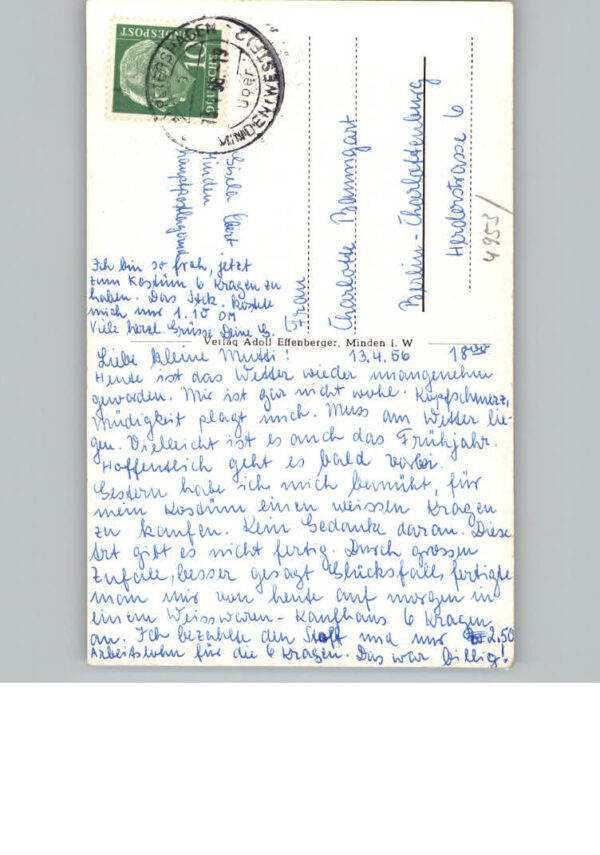 BUNDESPOST
10
MINDEN (WESTF) 2
Gisela Ebert
Minden
Hauptpostlagernd
Frau
Charlotte Baumgart
Berlin-Charlottenburg
Herderstrasse 6
4953/
Verlag Adolf Effenberger, Minden i. W
Liebe kleine Mutti! 13.4.56 18
Heute ist das Wetter wieder unangenehm
geworden. Mir ist gar nicht wohl. Kopfschmerz,
Müdigkeit plagt mich. Muss am Wetter lie-
gen. Vielleicht ist es auch das Frühjahr.
Hoffentlich geht es bald vorbei.
Gestern habe ich mich bemüht, für
mein Kostüm einen weissen Kragen
zu kaufen. Kein Gedanke daran. Diese
Art gibt es nicht fertig. Durch grossen
Zufall, besser gesagt Glücksfall, fertigte
man mir von heute auf morgen in
einem Weisswaren-Kaufhaus 6 Kragen
an. Ich bezahlte den Stoff und nur 2.50
Arbeitslohn für die 6 Kragen. Das war billig!
Ich bin so froh, jetzt
zum Kostüm 6 Kragen zu
haben. Das Stck. kostete
mich nur 1.10 DM
Viele herzl. Grüsse Deine G.